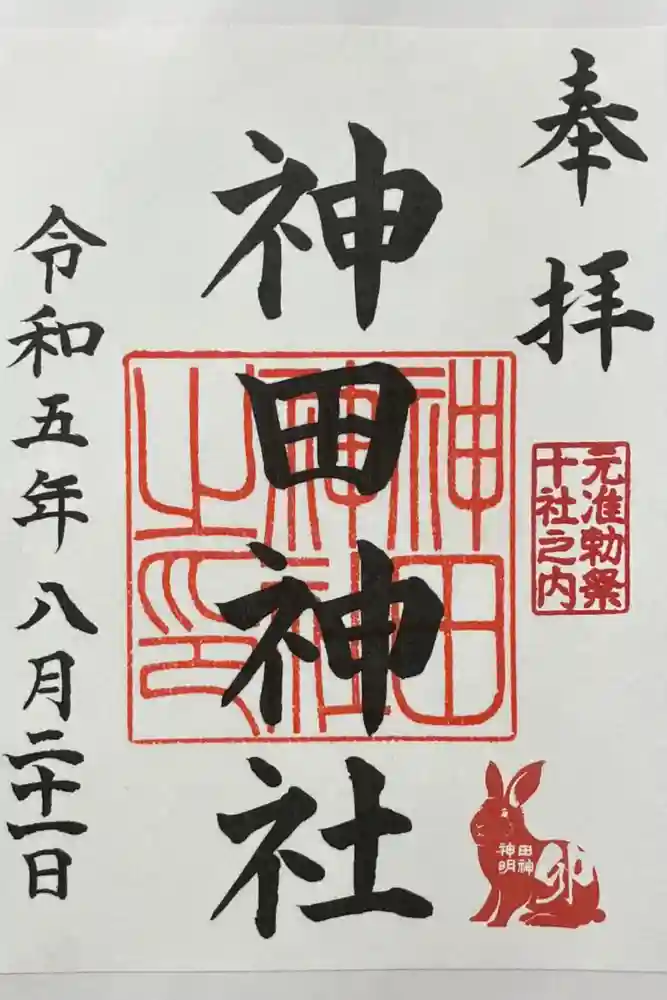 奉拝
元准勅祭
十社之内
神田神社
神田
神社
之印
田神
神明
卯
令和五年八月二十一日